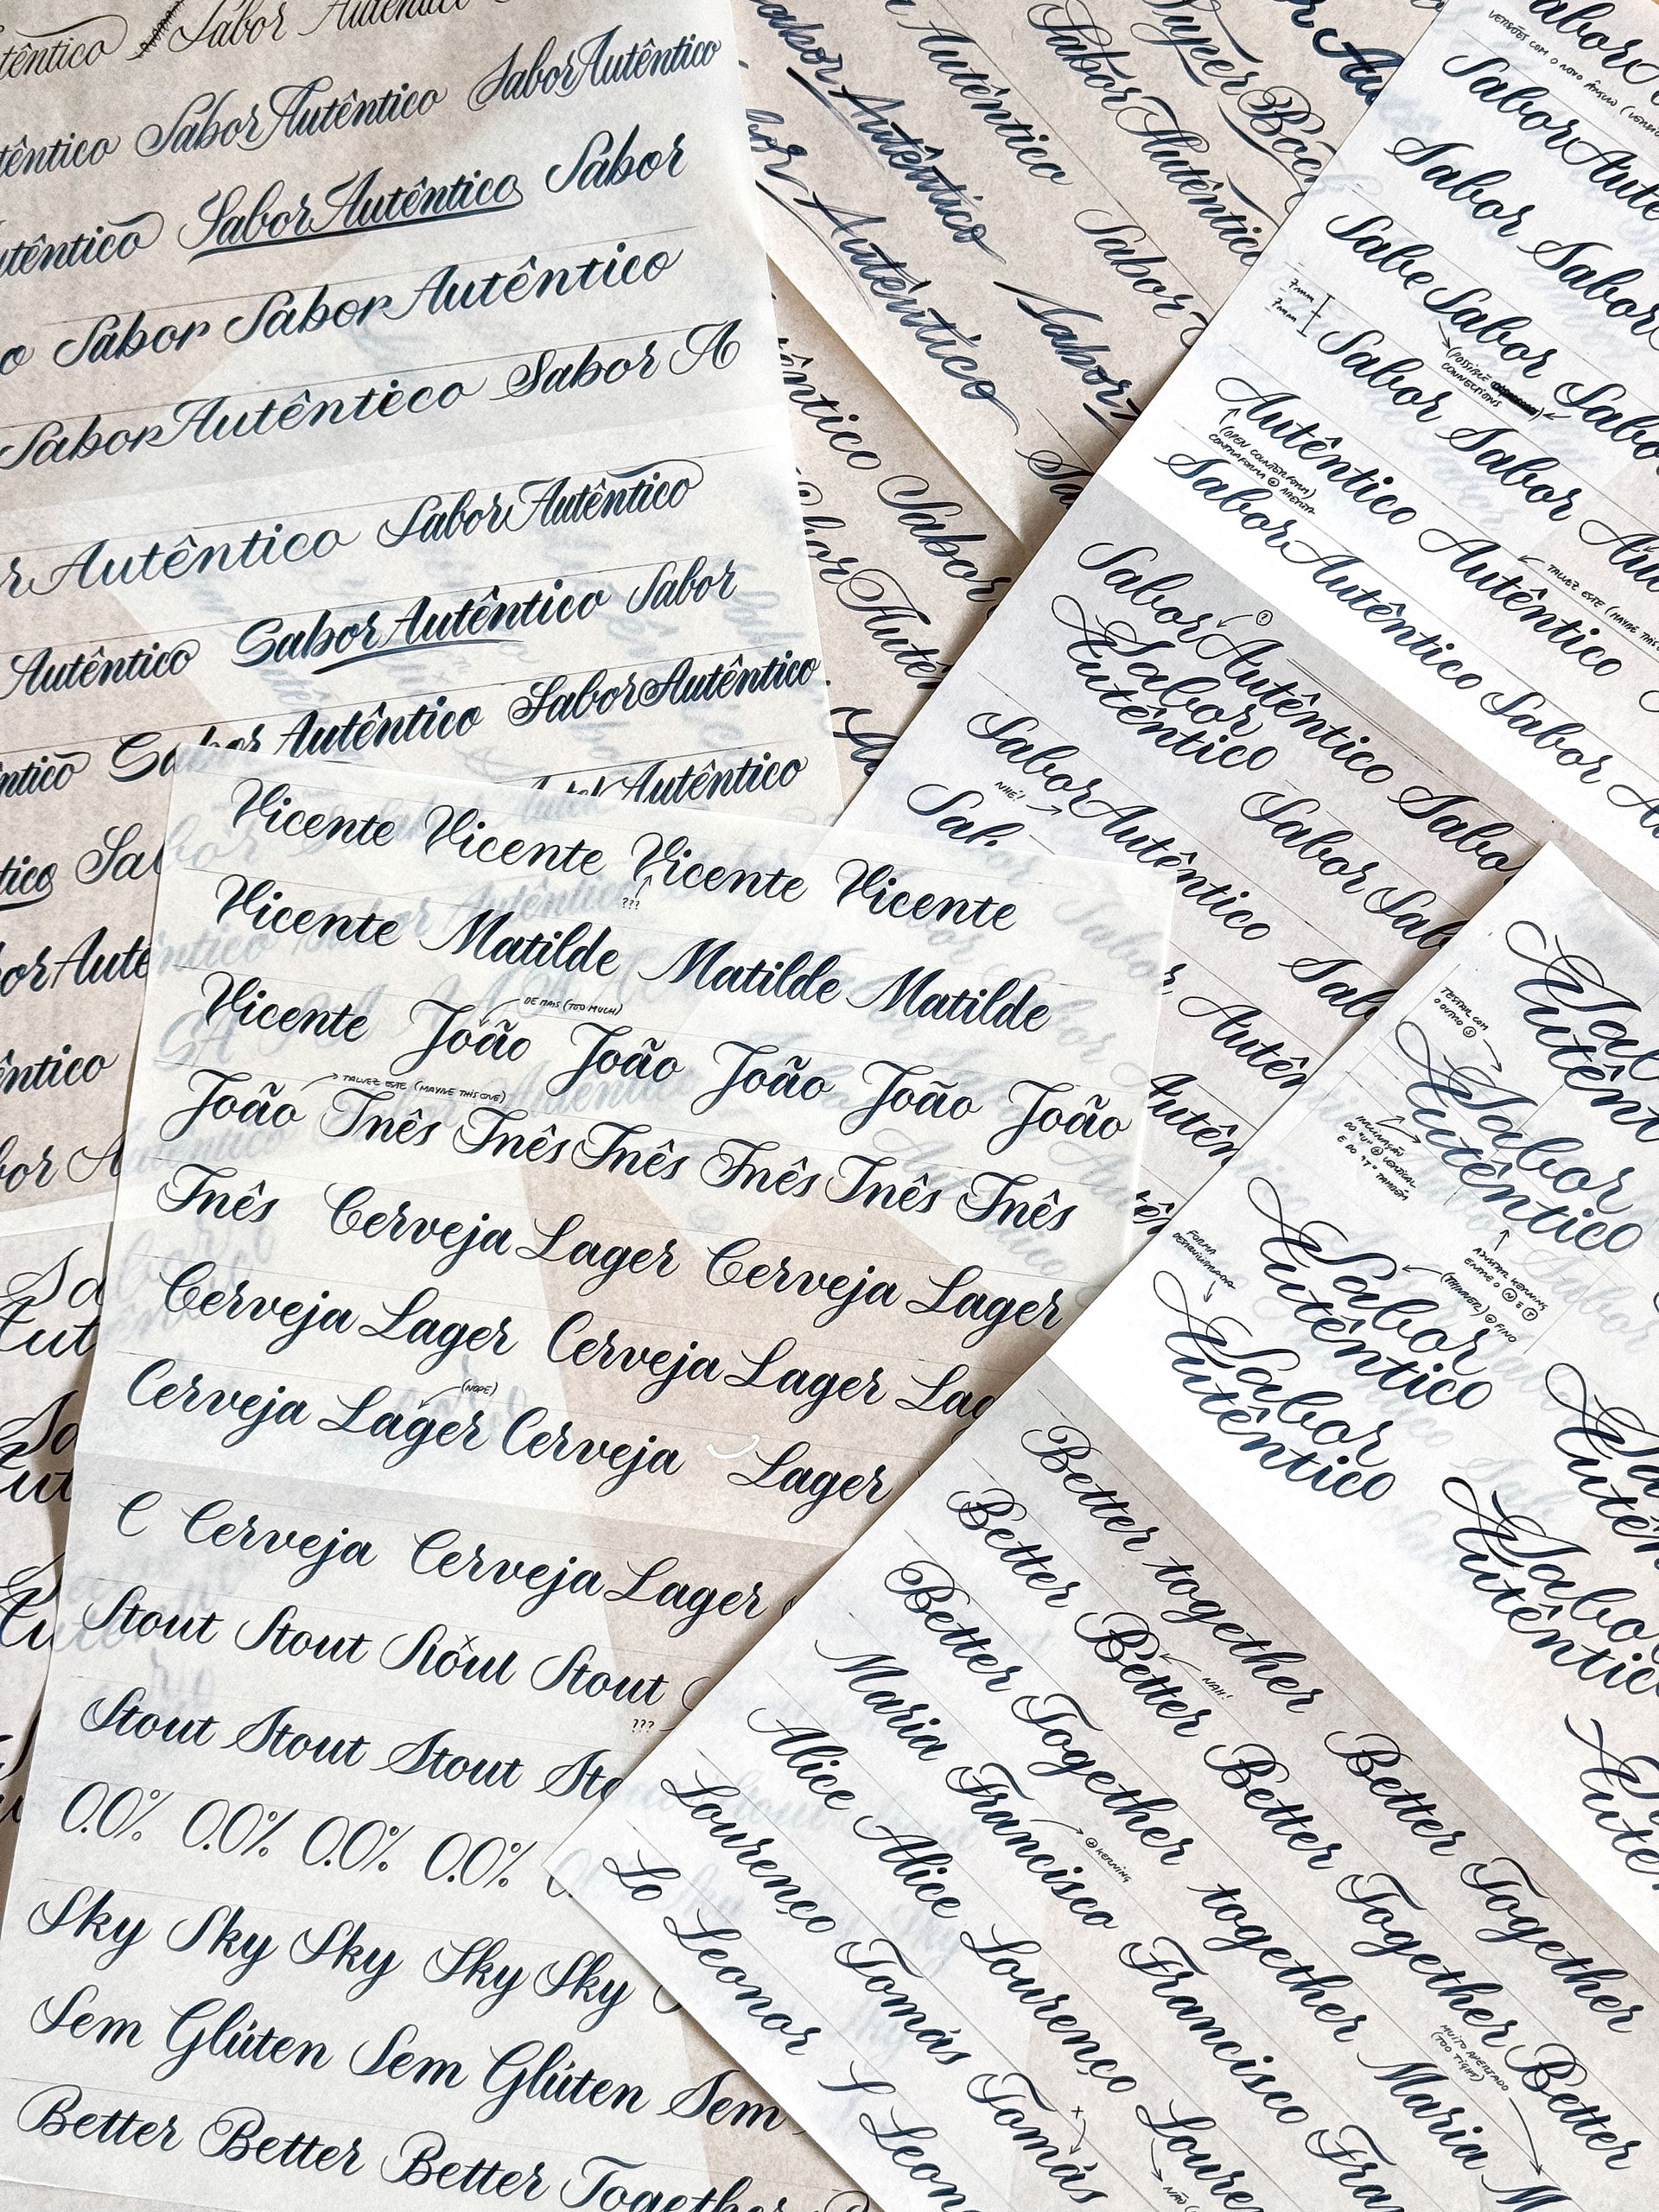 têntico Sabor Autêntico
têntico SaborAutêntico SaborAutêntico
utêntico SaborAutêntico Sabor
o Sabor SaborAutêntico
SaborAutêntico Sabor A
r Autêntico SaborAutêntico
Autêntico SaborAutêntico Sabor
ntico Sabor Autêntico SaborAutêntico
Autêntico
tico Sa
or Aute
ntico
bor A
Vicente Vicente Vicente Vicente
???
Vicente Matilde Matilde Matilde
DE MAIS (TOO MUCH)
Vicente João João João João João
TALVEZ ESTE (MAYBE THIS ONE)
João Inês Inês Inês Inês Inês Inês
Inês Cerveja Lager Cerveja Lager
Cerveja Lager Cerveja Lager Lag
(NOPE)
Cerveja Lager Cerveja Lager
C Cerveja Cerveja Lager
Stout Stout Stout Stout
???
Stout Stout Stout Sto
0.0% 0.0% 0.0% 0.0%
Sky Sky Sky Sky Sky
Sem Glúten Sem Glúten Sem
Better Better Better Together
Super Boc
Sabor Autêntico
Autêntico Sabor
Sabor Autêntico
Autêntico Sabor
VERSÕES COM O NOVO ÂNGULO
Sabor Aute
Sabor Sabor
Sabe Sabor Sabo
7mm
7mm
(POSSIBLE CONNECTIONS)
Sabor Sabor Au
Autêntico Autêntico
(OPEN COUNTERFORM)
CONTRAFORMA + ABERTA
TALVEZ ESTE (MAYBE THIS
SaborAutêntico Sabor A
(?)
SaborAutêntico Sabo
Sabor
Autêntico
Sabor Sab
NHE!
SaborAutêntico Sab
Sab
Autên
TESTAR COM
O OUTRO S
Sabor
Autêntico
INCLINAÇÃO
DO "U" + VERTICAL
E DO "T" TAMBÉM
AJUSTAR KERNING
ENTRE O N E T
(THINNER) + FINO
Sabor
Autêntico
FORMA
DESEQUILIBRADA
Sabor
Autêntico
Sabo
Autêntic
Better together Better Together
Better Better Better Together Better
NAH!
Better Together together Maria M
MUITO APERTADO
(TOO TIGHT)
Maria Francisco Francisco Fra
+ KERNING
Alice Alice Lourenço Loure
NÃO
Lourenço Tomás Tomás
Lo Leonor L Leono